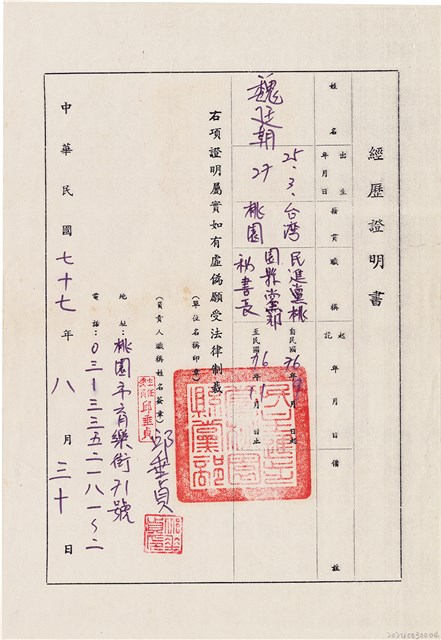 經歷證明書
姓名
出生年月日
籍貫
職稱
起訖年月日
備註
魏廷朝
25.3.27
台湾桃園
民進黨桃園縣黨部秘書長
自民國76年 月 日起
至民國76年11月 日止
右項證明屬實如有虛偽願受法律制裁
(單位名稱印章)
民主進步黨桃園縣黨部
(負責人職稱姓名簽章)
主任委員 邱垂貞
邱垂貞
地址:桃園市育樂街71號
電話:03-3352181~2
中華民國七十七年八月三十日